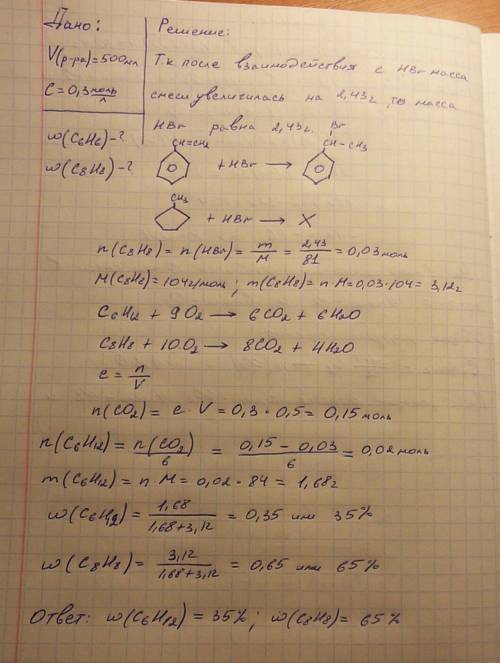 Дано:
V(р-ра)=500мл
C=0,3 моль/л
ω(C₆H₆)-?
ω(C₈H₈)-?
Решение:
Т.к. после взаимодействия с HBr масса
смеси увеличилась на 2,43г, то масса
HBr равна 2,43г.
CH=CH₂ + HBr → Br CH-CH₃
CH₃ + HBr → X
n(C₈H₈)=n(HBr)= m/M = 2,43/81 = 0,03моль
M(C₈H₈)=104г/моль; m(C₈H₈)=n·M=0,03·104=3,12г
C₆H₁₂ + 9O₂ → 6CO₂ + 6H₂O
C₈H₈ + 10O₂ → 8CO₂ + 4H₂O
c = n/V
n(CO₂) = c·V = 0,3·0,5 = 0,15моль
n(C₆H₁₂) = n(CO₂)/6 = 0,15-0,03/6 = 0,02моль
m(C₆H₁₂) = n·M = 0,02·84 = 1,68г
ω(C₆H₁₂) = 1,68/1,68+3,12 = 0,35 или 35%
ω(C₈H₈) = 3,12/1,68+3,12 = 0,65 или 65%
Ответ: ω(C₆H₁₂) = 35%; ω(C₈H₈) = 65%